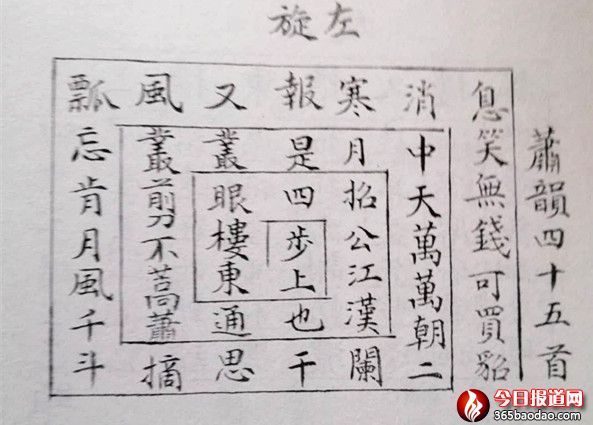 左旋
蕭韻四十五首
息笑無錢可買貂
消中天萬萬朝二
寒月招公江漢闌
報是四步上也干
又叢眼樓東通思
風叢剪不蒿蕭摘
瓢忘肯月風千斗
今日报道网
365baodao.com